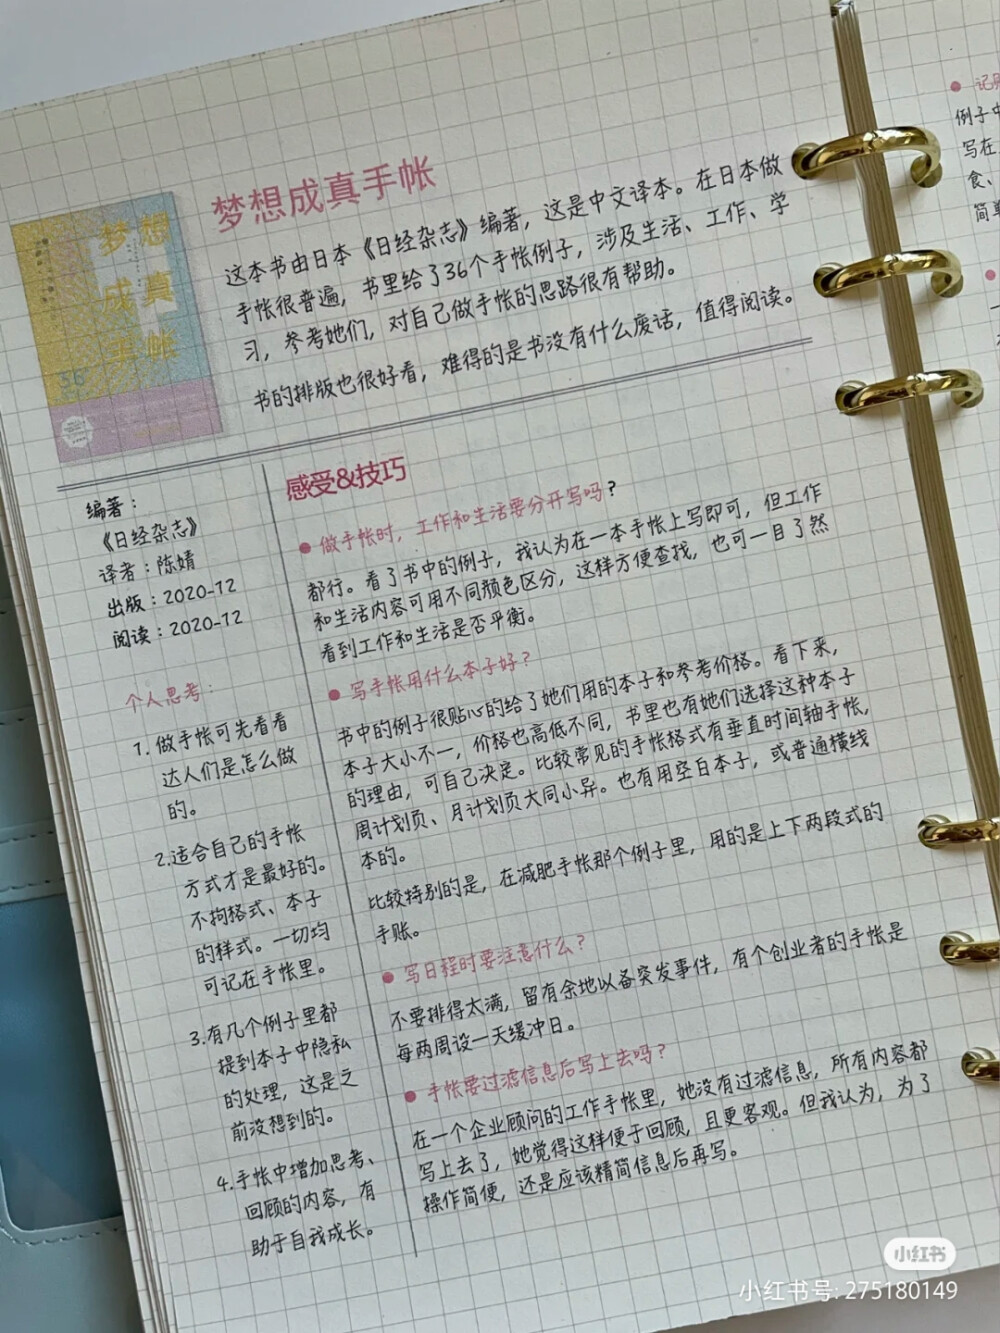 梦想成真手帐
梦想
成真
手帐
36
这本书由日本《日经杂志》编著，这是中文译本。在日本做
手帐很普遍，书里给了36个手帐例子，涉及生活、工作、学
习，参考她们，对自己做手帐的思路很有帮助。
书的排版也很好看，难得的是书没有什么废话，值得阅读。
编著：
《日经杂志》
译者：陈婧
出版：2020-12
阅读：2020-12
个人思考：
1.做手帐可先看看
达人们是怎么做
的。
2.适合自己的手帐
方式才是最好的。
不拘格式、本子
的样式。一切均
可记在手帐里。
3.有几个例子里都
提到本子中隐私
的处理，这是之
前没想到的。
4.手帐中增加思考、
回顾的内容，有
助于自我成长。
感受&技巧
做手帐时，工作和生活要分开写吗？
都行。看了书中的例子，我认为在一本手帐上写即可，但工作
和生活内容可用不同颜色区分，这样方便查找，也可一目了然
看到工作和生活是否平衡。
写手帐用什么本子好？
书中的例子很贴心的给了她们用的本子和参考价格。看下来，
本子大小不一，价格也高低不同，书里也有她们选择这种本子
的理由，可自己决定。比较常见的手帐格式有垂直时间轴手帐，
周计划页、月计划页大同小异。也有用空白本子，或普通横线
本的。
比较特别的是，在减肥手帐那个例子里，用的是上下两段式的
手账。
写日程时要注意什么？
不要排得太满，留有余地以备突发事件，有个创业者的手帐是
每两周设一天缓冲日。
手帐要过滤信息后写上去吗？
在一个企业顾问的工作手帐里，她没有过滤信息，所有内容都
写上去了，她觉得这样便于回顾，且更客观。但我认为，为了
操作简便，还是应该精简信息后再写。
例子中
写在
食、
简单
小红书
小红书号: 275180149